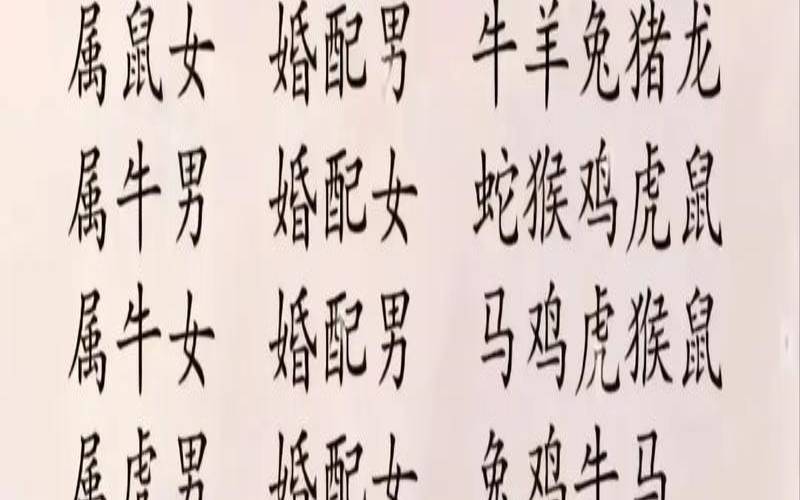 属鼠女 婚配男 牛羊兔猪龙
属牛男 婚配女 蛇猴鸡虎鼠
属牛女 婚配男 马鸡虎猴鼠
属虎男 婚配女 兔鸡牛马